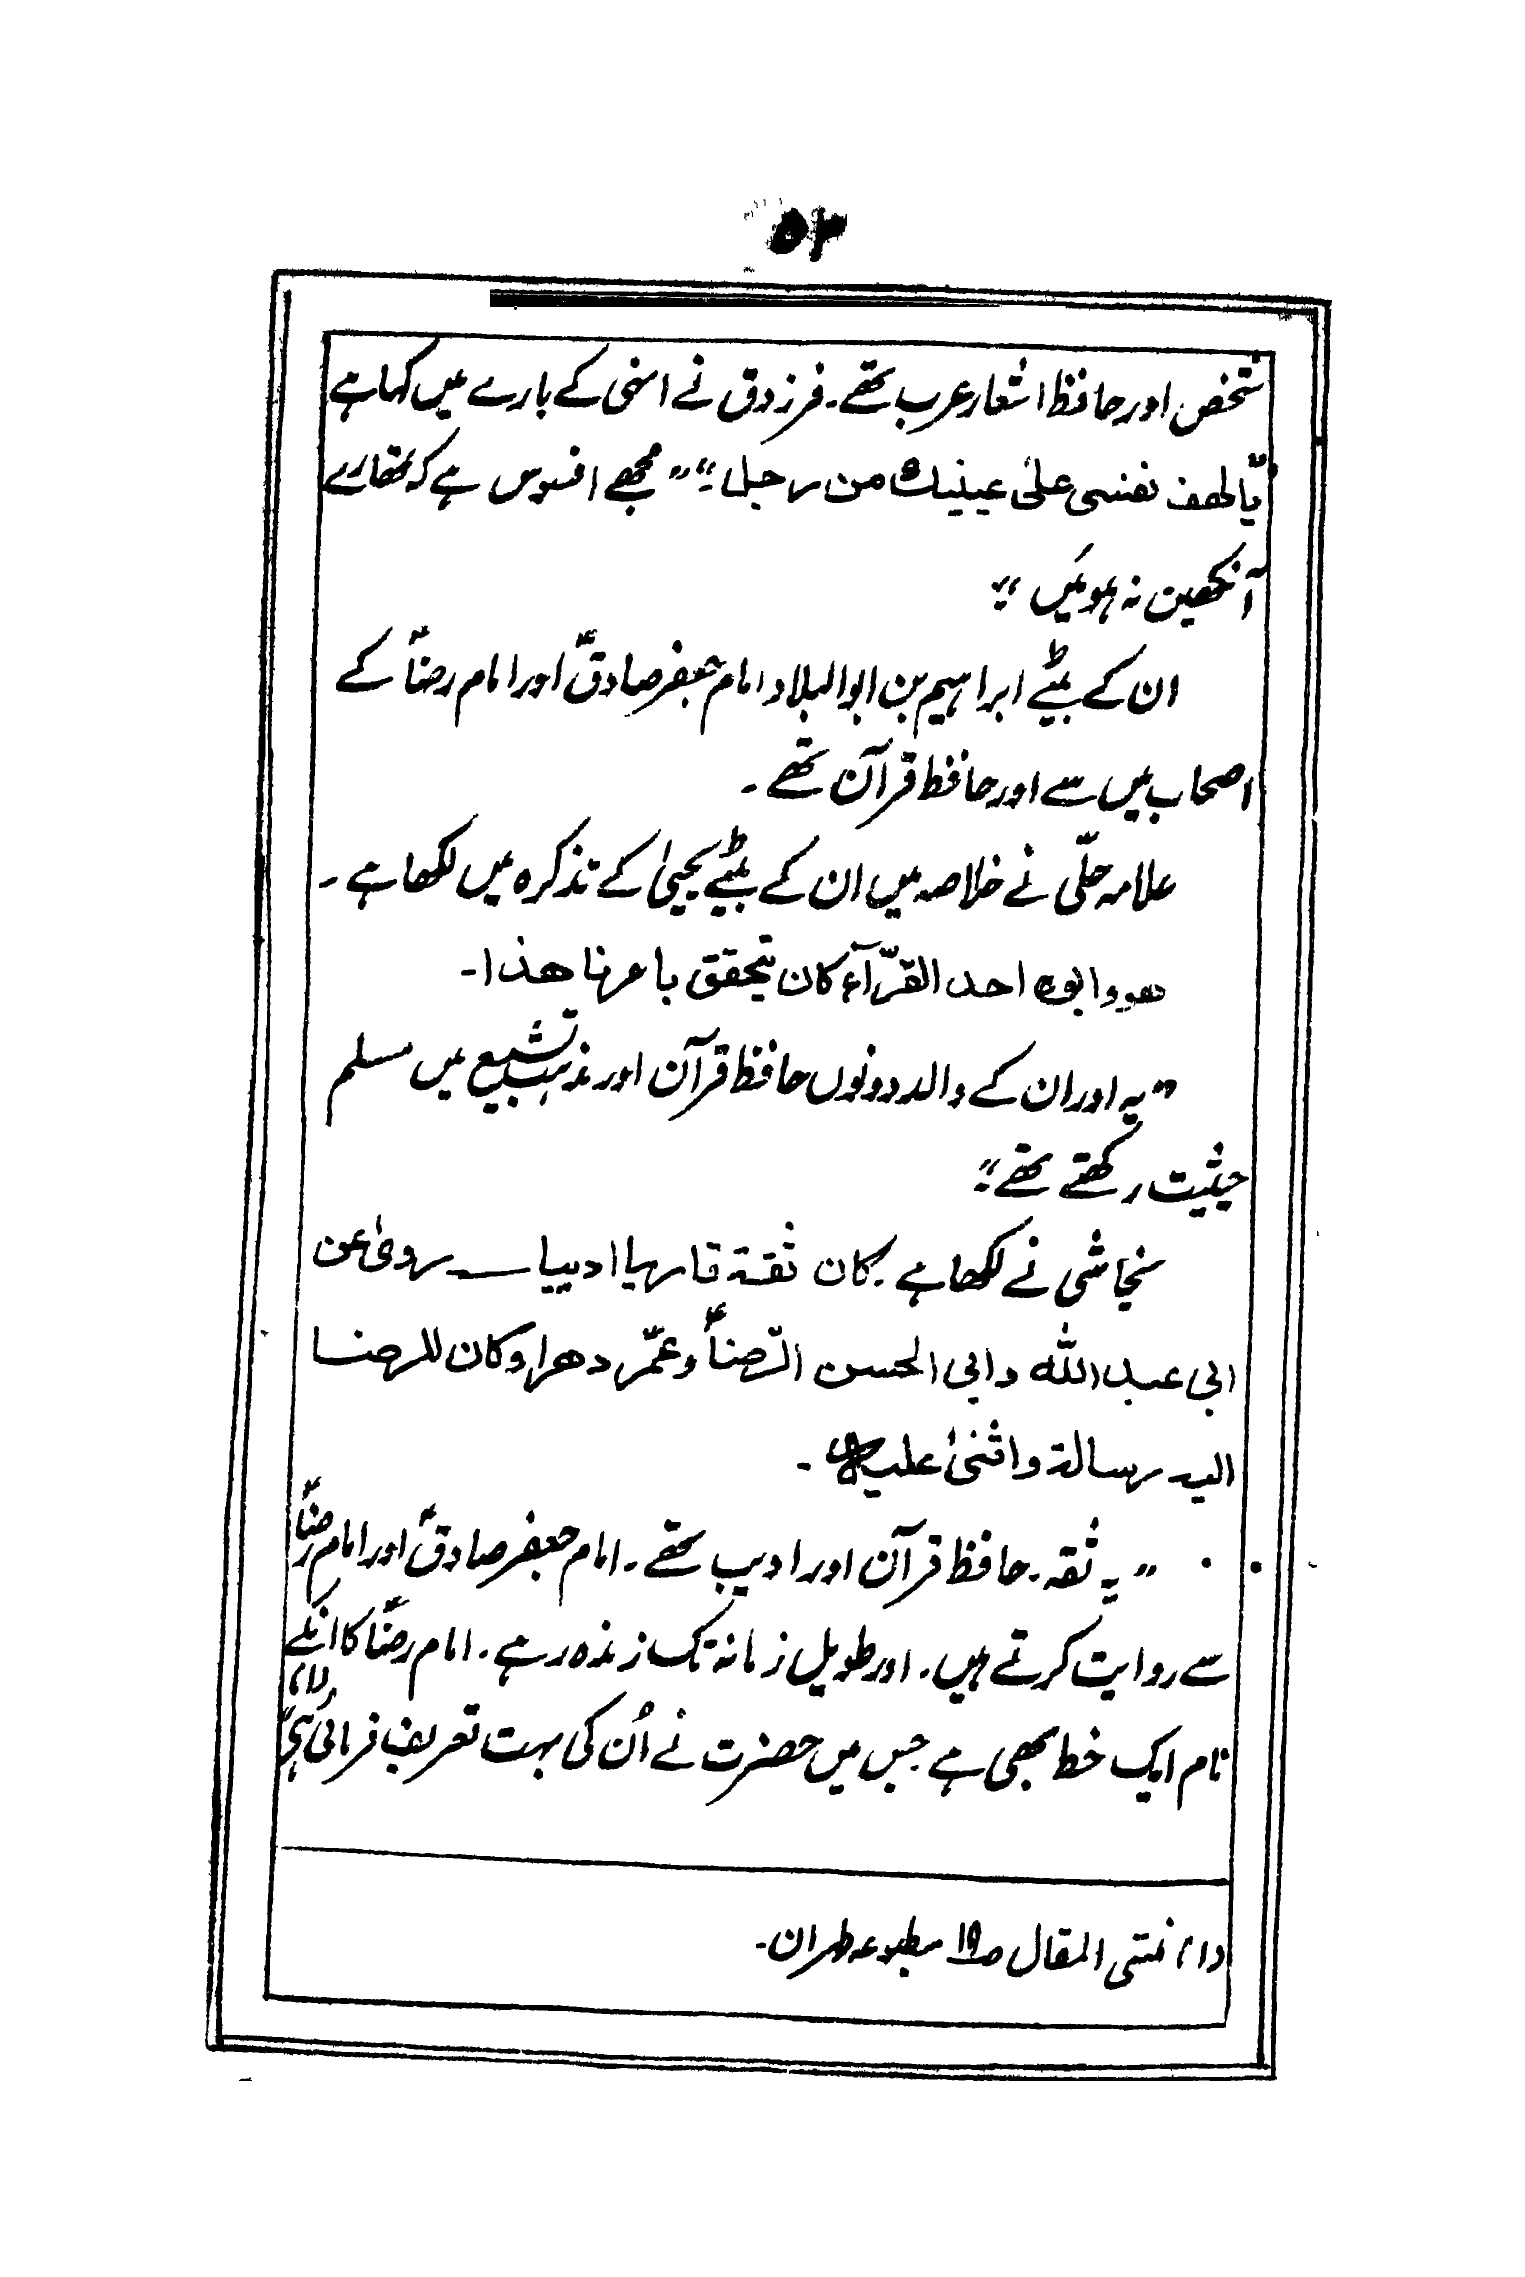 ۵۲
شخص اور حافظ اشعار عرب تھے۔ فرزدق نے انہی کے بارے میں کہا ہے
یا لھف نفسی علیٰ عینیک من رجل۔" " مجھے افسوس ہے کہ تمھارے
آنکھیں نہ ہوئیں۔"
ان کے بیٹے ابراہیم بن ابو البلاد امام جعفر صادقؑ اور امام رضاؑ کے
اصحاب میں سے اور حافظ قرآن تھے۔
علامہ حلّی نے خلاصہ میں ان کے بیٹے یحییٰ کے تذکرہ میں لکھا ہے۔
ھو و ابوہ احد القرّآء کان یتحقق بامرنا ھذا۔
"یہ اور ان کے والد دونوں حافظ قرآن اور مذہب تشیع میں مسلم
حیثیت رکھتے تھے۔"
نجاشی نے لکھا ہے۔ کان ثقۃ قاریا ادیبا ـــ رویٰ عن
ابی عبد اللہ و ابی الحسن الرّضاؑ و عمّر دھرا و کان للرضا
الیہ رسالۃ و اثنیٰ علیہ۔
"یہ ثقہ۔ حافظ قرآن اور ادیب تھے۔ امام جعفر صادقؑ اور امام رضاؑ
سے روایت کرتے ہیں۔ اور طویل زمانہ تک زندہ رہے۔ امام رضاؑ کا انکے
نام ایک خط بھی ہے جس میں حضرت نے اُن کی بہت تعریف فرمائی ہے" (۱)
(۱) منتہی المقال ص۱۹ مطبوعہ طہران۔